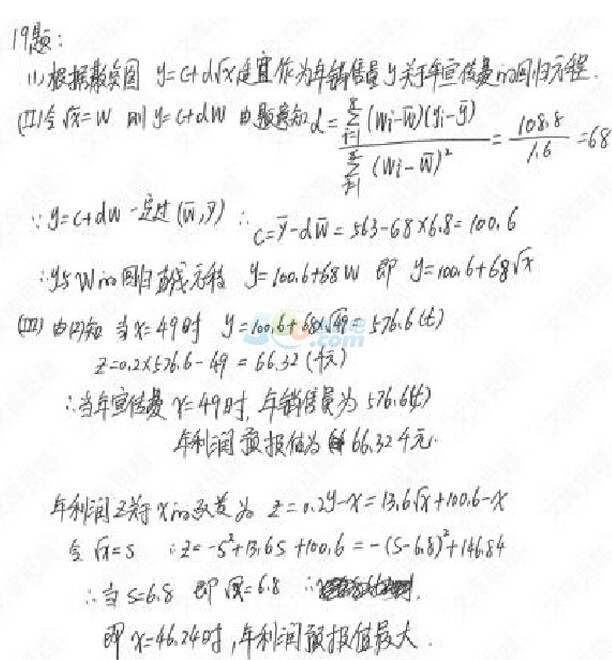 19题:
(I) 根据散点图 y=c+d√x适宜作为年销售量y关于年宣传费的回归方程.
(II) 令√x=W 则 y=c+dW 由题意知 d= \frac{\sum_{i=1}^{8}(Wi-\bar{W})(yi-\bar{y})}{\sum_{i=1}^{8}(Wi-\bar{W})^2} = \frac{108.8}{1.6} =68
∵y=c+dW一定过(\bar{W},\bar{y}) ∴ c=\bar{y}-d\bar{W}=563-68×6.8=100.6
∴y与W的回归直线方程 y=100.6+68W 即 y=100.6+68√x
(III) 由(II)知 当x=49时 y=100.6+68×√49=576.6(t)
z=0.2×576.6-49=66.32(千元)
∴当年宣传费x=49时,年销售量为576.6(t)
年利润预报值为 66.32千元.
年利润z关于x的函数为 z=0.2y-x=13.6√x+100.6-x
令√x=s ∴z=-s²+13.6s+100.6=-(s-6.8)²+146.84
∴当s=6.8 即√x=6.8 ∴
即x=46.24时,年利润预报值最大.